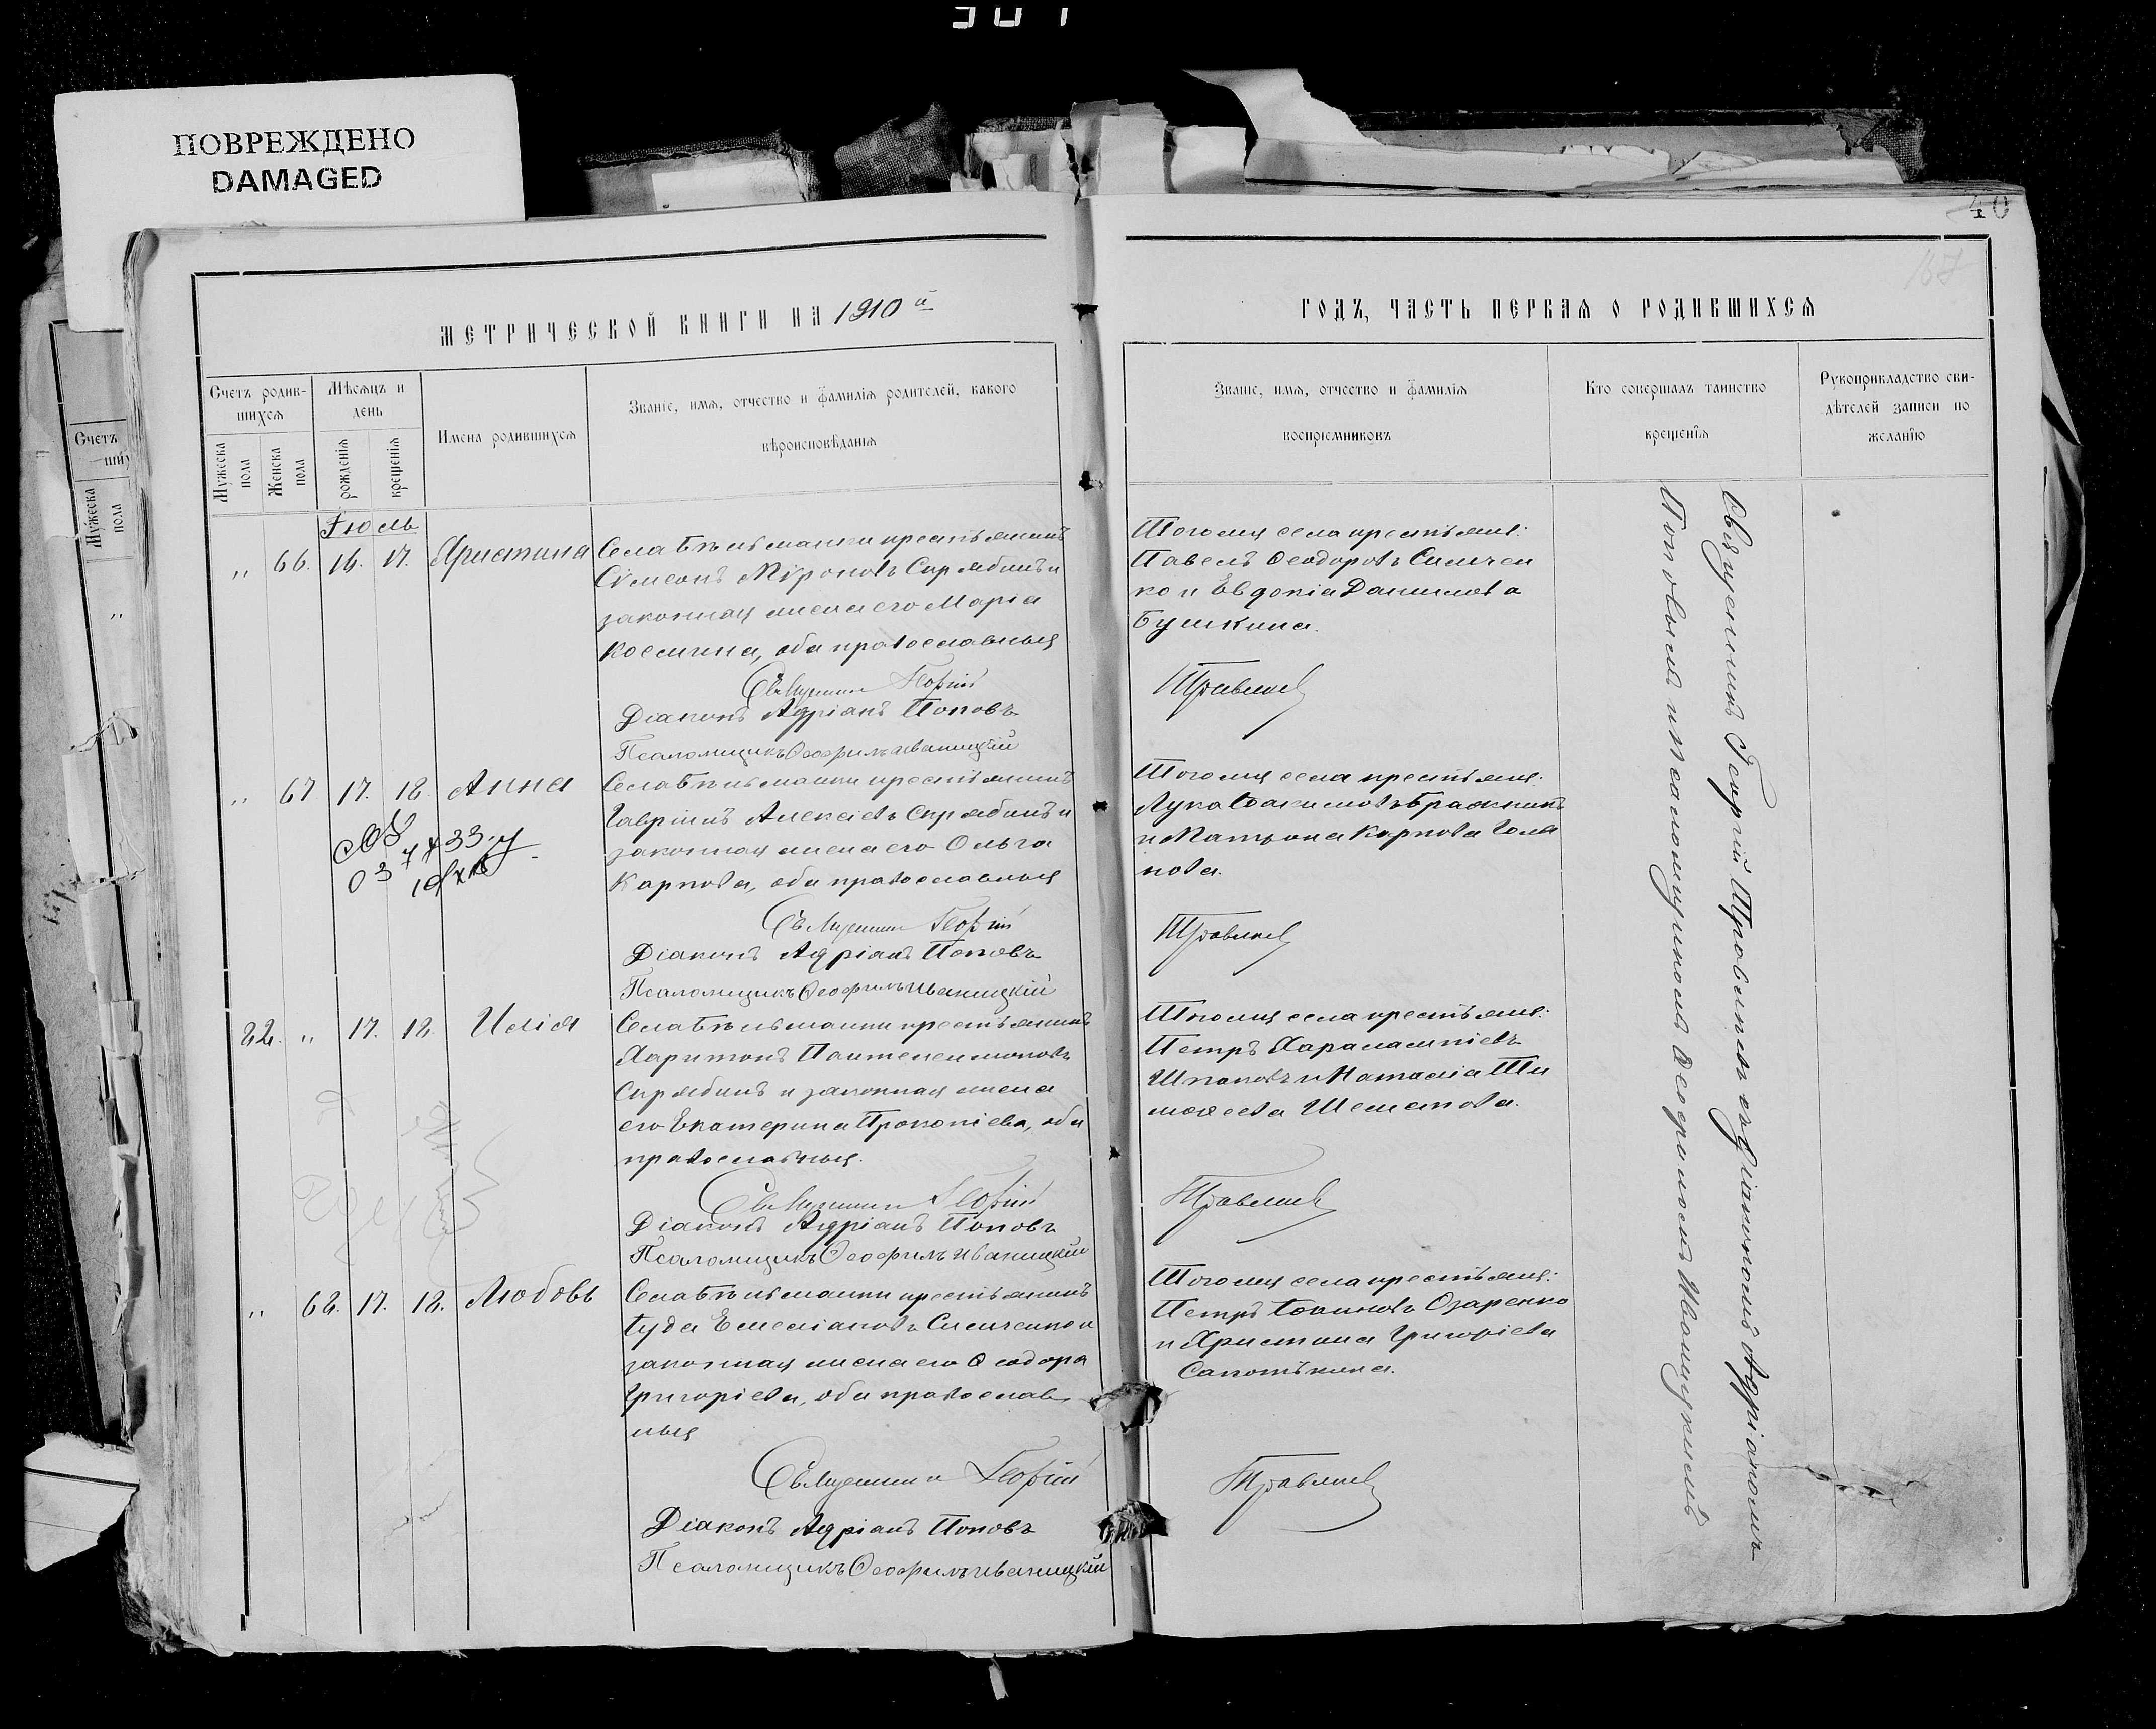 ПОВРЕЖДЕНО
DAMAGED
40
167
МЕТРИЧЕСКОЙ КНИГИ НА 1910й
ГОДЪ, ЧАСТЬ ПЕРВАЯ О РОДИВШИХСЯ
Счетъ родив-
шихся
Мужеска пола
Женска пола
Мѣсяцъ и
день
рожденія
крещенія
Имена родившихся
Званіе, имя, отчество и фамилія родителей, какого
вѣроисповѣданія
Званіе, имя, отчество и фамилія
воспріемниковъ
Кто совершалъ таинство
крещенія
Рукоприкладство сви-
дѣтелей записи по
желанію
Іюль
„ 66. 16. 17. Христина
Села крестьянинъ
Сѵмеонъ Мѵроновъ Скрябинъ и
законная жена его Марія
Космина, оба православныя
Священникъ Георгій
Діаконъ Адріанъ Поповъ
Псаломщикъ Ѳеофилъ Иваницкій
Тогоже села крестьяне:
Павелъ Ѳеодоровъ Симчен
ко и Евдокія Данилова
Бушкина.
„ 67 17. 18. Анна
Села крестьянинъ
Гавріилъ Алексіевъ Скрябинъ и
законная жена его Ольга
Карпова, оба православныя
Священникъ Георгій
Діаконъ Адріанъ Поповъ
Псаломщикъ Ѳеофилъ Иваницкій
Тогоже села крестьяне:
Лука Іоакимовъ Бражникъ
и Матрона Карпова Гола
нова.
22. „ 17. 18. Илія
Села крестьянинъ
Харитонъ Пантелеимоновъ
Скрябинъ и законная жена
его Екатерина Прокопіева, оба
православныя.
Священникъ Георгій
Діаконъ Адріанъ Поповъ
Псаломщикъ Ѳеофилъ Иваницкій
Тогоже села крестьяне:
Петръ Харалампіевъ
и Наталія Ти
моѳеева Шеменова.
„ 68. 17. 18. Любовь
Села крестьянинъ
Іуда Емеліановъ Симченко и
законная жена его Ѳеодора
Григоріева, оба православ
ныя
Священникъ Георгій
Діаконъ Адріанъ Поповъ
Псаломщикъ Ѳеофилъ Иваницкій
Тогоже села крестьяне:
Петръ Іоанновъ Озаренко
и Христина Григоріева
Сапотькина.
Священникъ Георгій съ діакономъ Адріаномъ
Поповымъ и псаломщикомъ Ѳеофиломъ Иваницкимъ